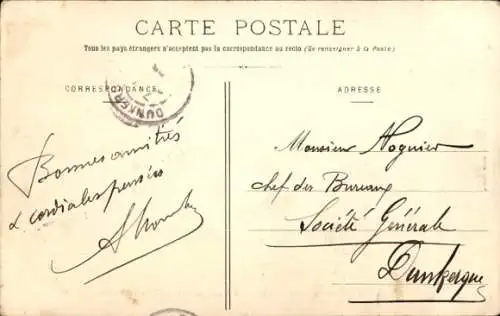 CARTE POSTALE
Tous les pays étrangers n'acceptent pas la correspondance au recto (Se renseigner à la Poste)
CORRESPONDANCE
DUNKER
Bonnes amitiés
& cordiales pensées
ADRESSE
Monsieur Noguier
chef des Bureaux
Société Générale
Dunkerque